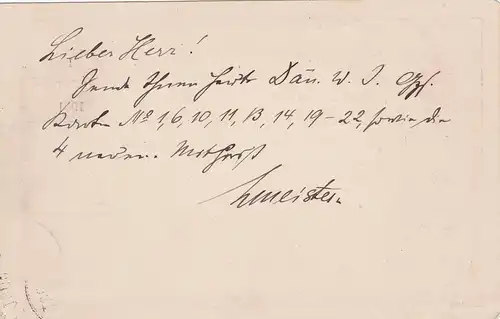 Lieber Herr!
Sende Ihnen heute Dän. W. I.
Karten Nº 1, 6, 10, 11, 13, 14, 19-22, sowie die
4 neuen. Mit Gruß